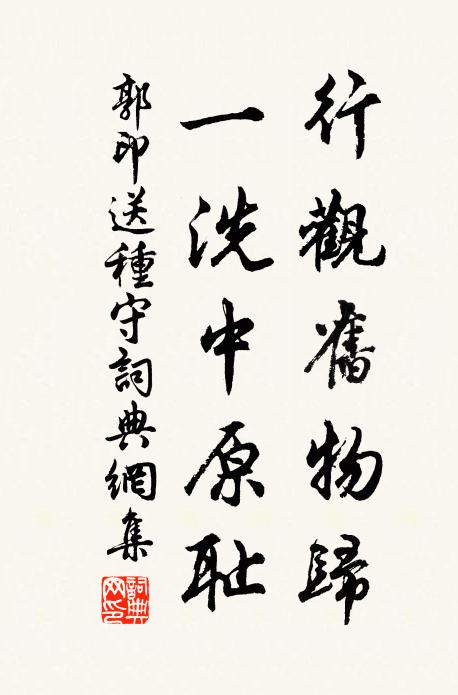 行觀舊物歸
一洗中原耻
郭印送種守詞典網集
詞典網印